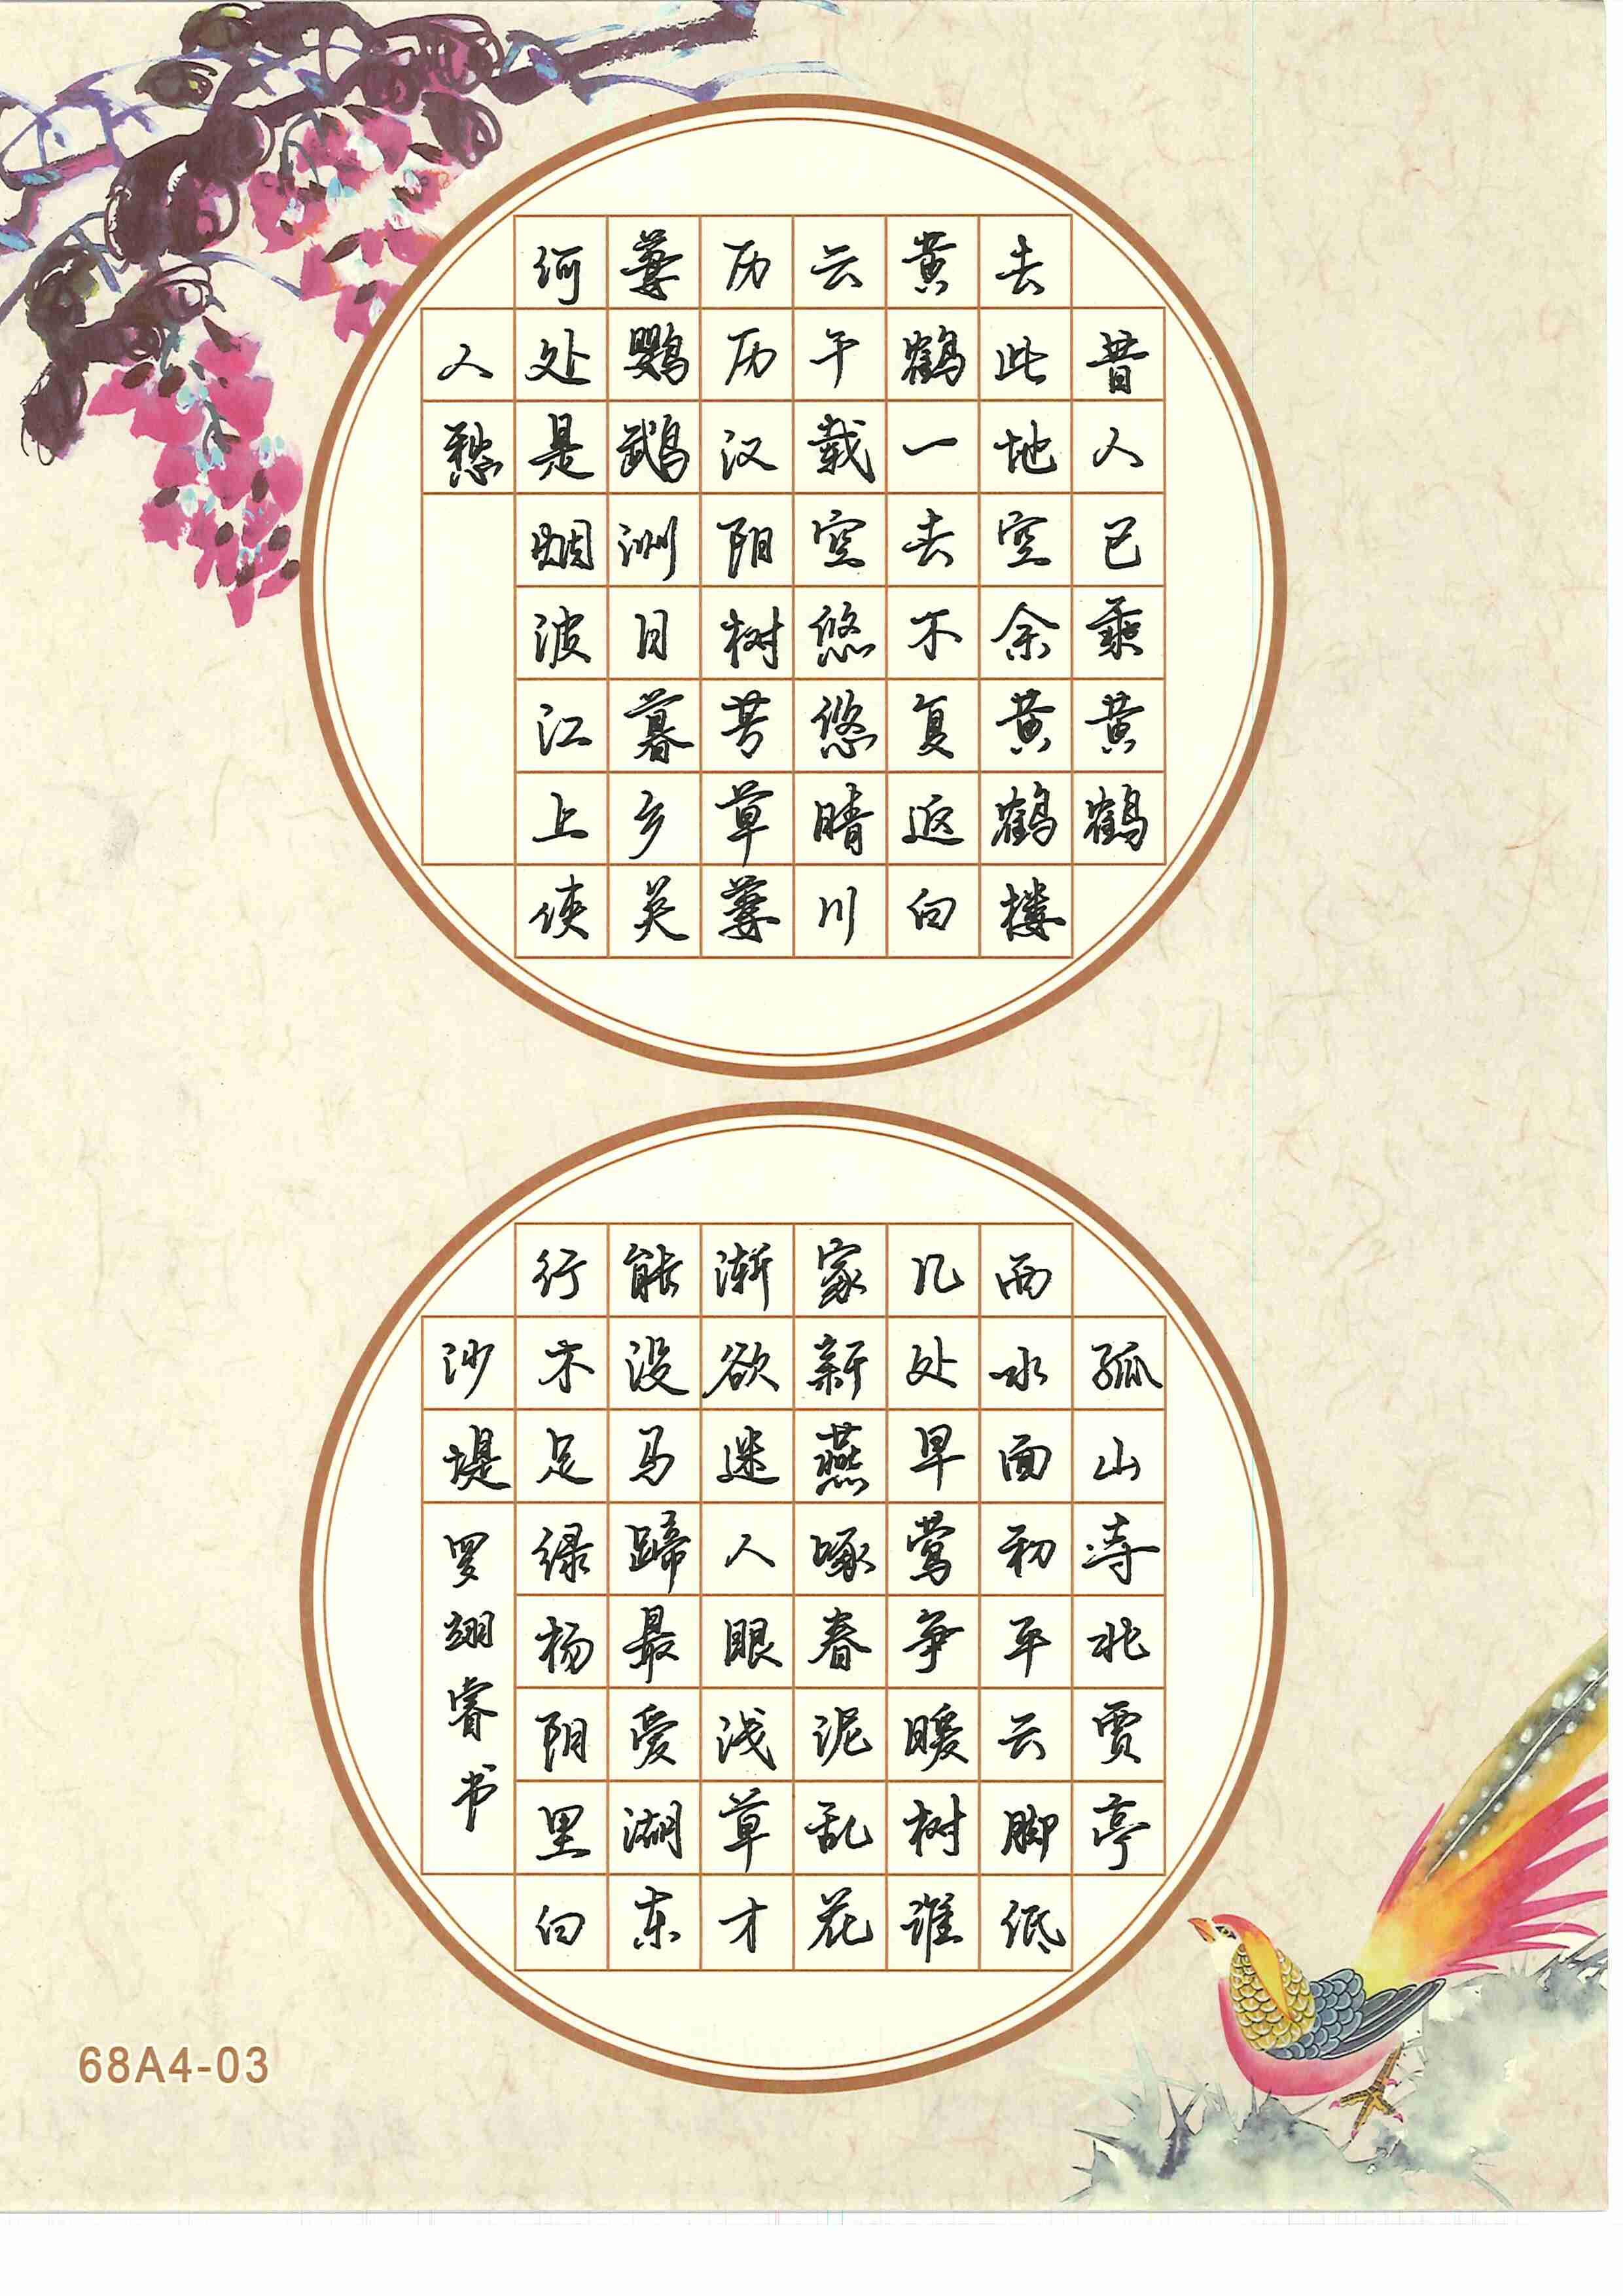 昔人已乘黄鹤
去此地空余黄鹤楼
黄鹤一去不复返白
云千载空悠悠晴川
历历汉阳树芳草萋
萋鹦鹉洲日暮乡关
何处是烟波江上使
人愁
孤山寺北贾亭
西水面初平云脚低
几处早莺争暖树谁
家新燕啄春泥乱花
渐欲迷人眼浅草才
能没马蹄最爱湖东
行不足绿杨阴里白
沙堤
罗翊睿书
68A4-03